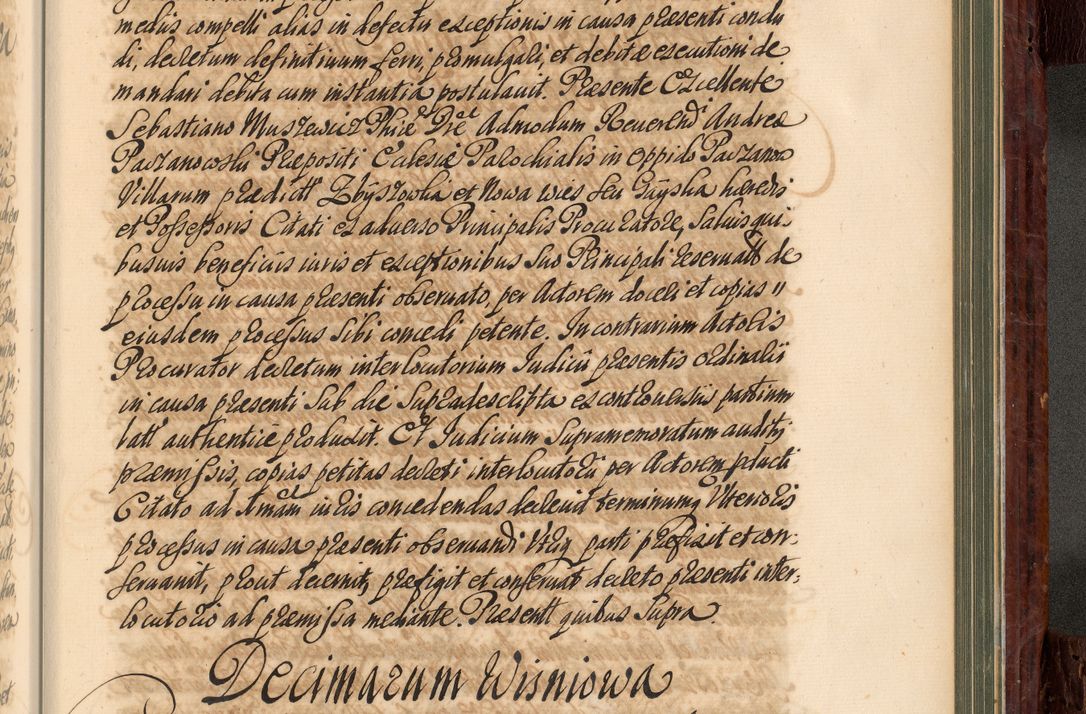 medus compelli alias in defectu exceptionis in causa præsenti condu
di, decretum definitivum ferri, promulgari, et debitæ executioni de
mandari debita cum instantia postulavit. Præsente Excellente
Sebastiano Muszewicz Phiæ Dre Admodum Reverendi Andreæ
Paczanowski Præpositi Ecclesiæ Parochialis in oppido Paczanow
Villarum prædictt Zbyszowka et Nowa wies seu Guyska hæredis
et Possessoris Citati ex adverso Principalis Procuratore, salvis qui-
busvis beneficiis iuris et exceptionibus suo Principali reservatt de
processu in causa præsenti observato, per Actorem doceri et copias
eiusdem processus sibi concedi petente. In contrarium Actoris
Procurator decretum interlocutorium Iudicii præsentis ordinarii
in causa præsenti sub die supradescripta ex controversiis partium
latt authenticè produxit. Et Iudicium supramemoratum auditis
præmissis, copias petitas decreti interlocutorii per Actorem producti
Citato ad Armam iuris concedendas decrevit terminumq Ulterioris
processus in causa præsenti observandi Utriq parti præfixit et con-
servavit, prout decernit, præfigit et conservat decreto præsenti inter-
locutorio ad præmissa mediante. Præsentt quibus supra
Decimarum Wisniowa